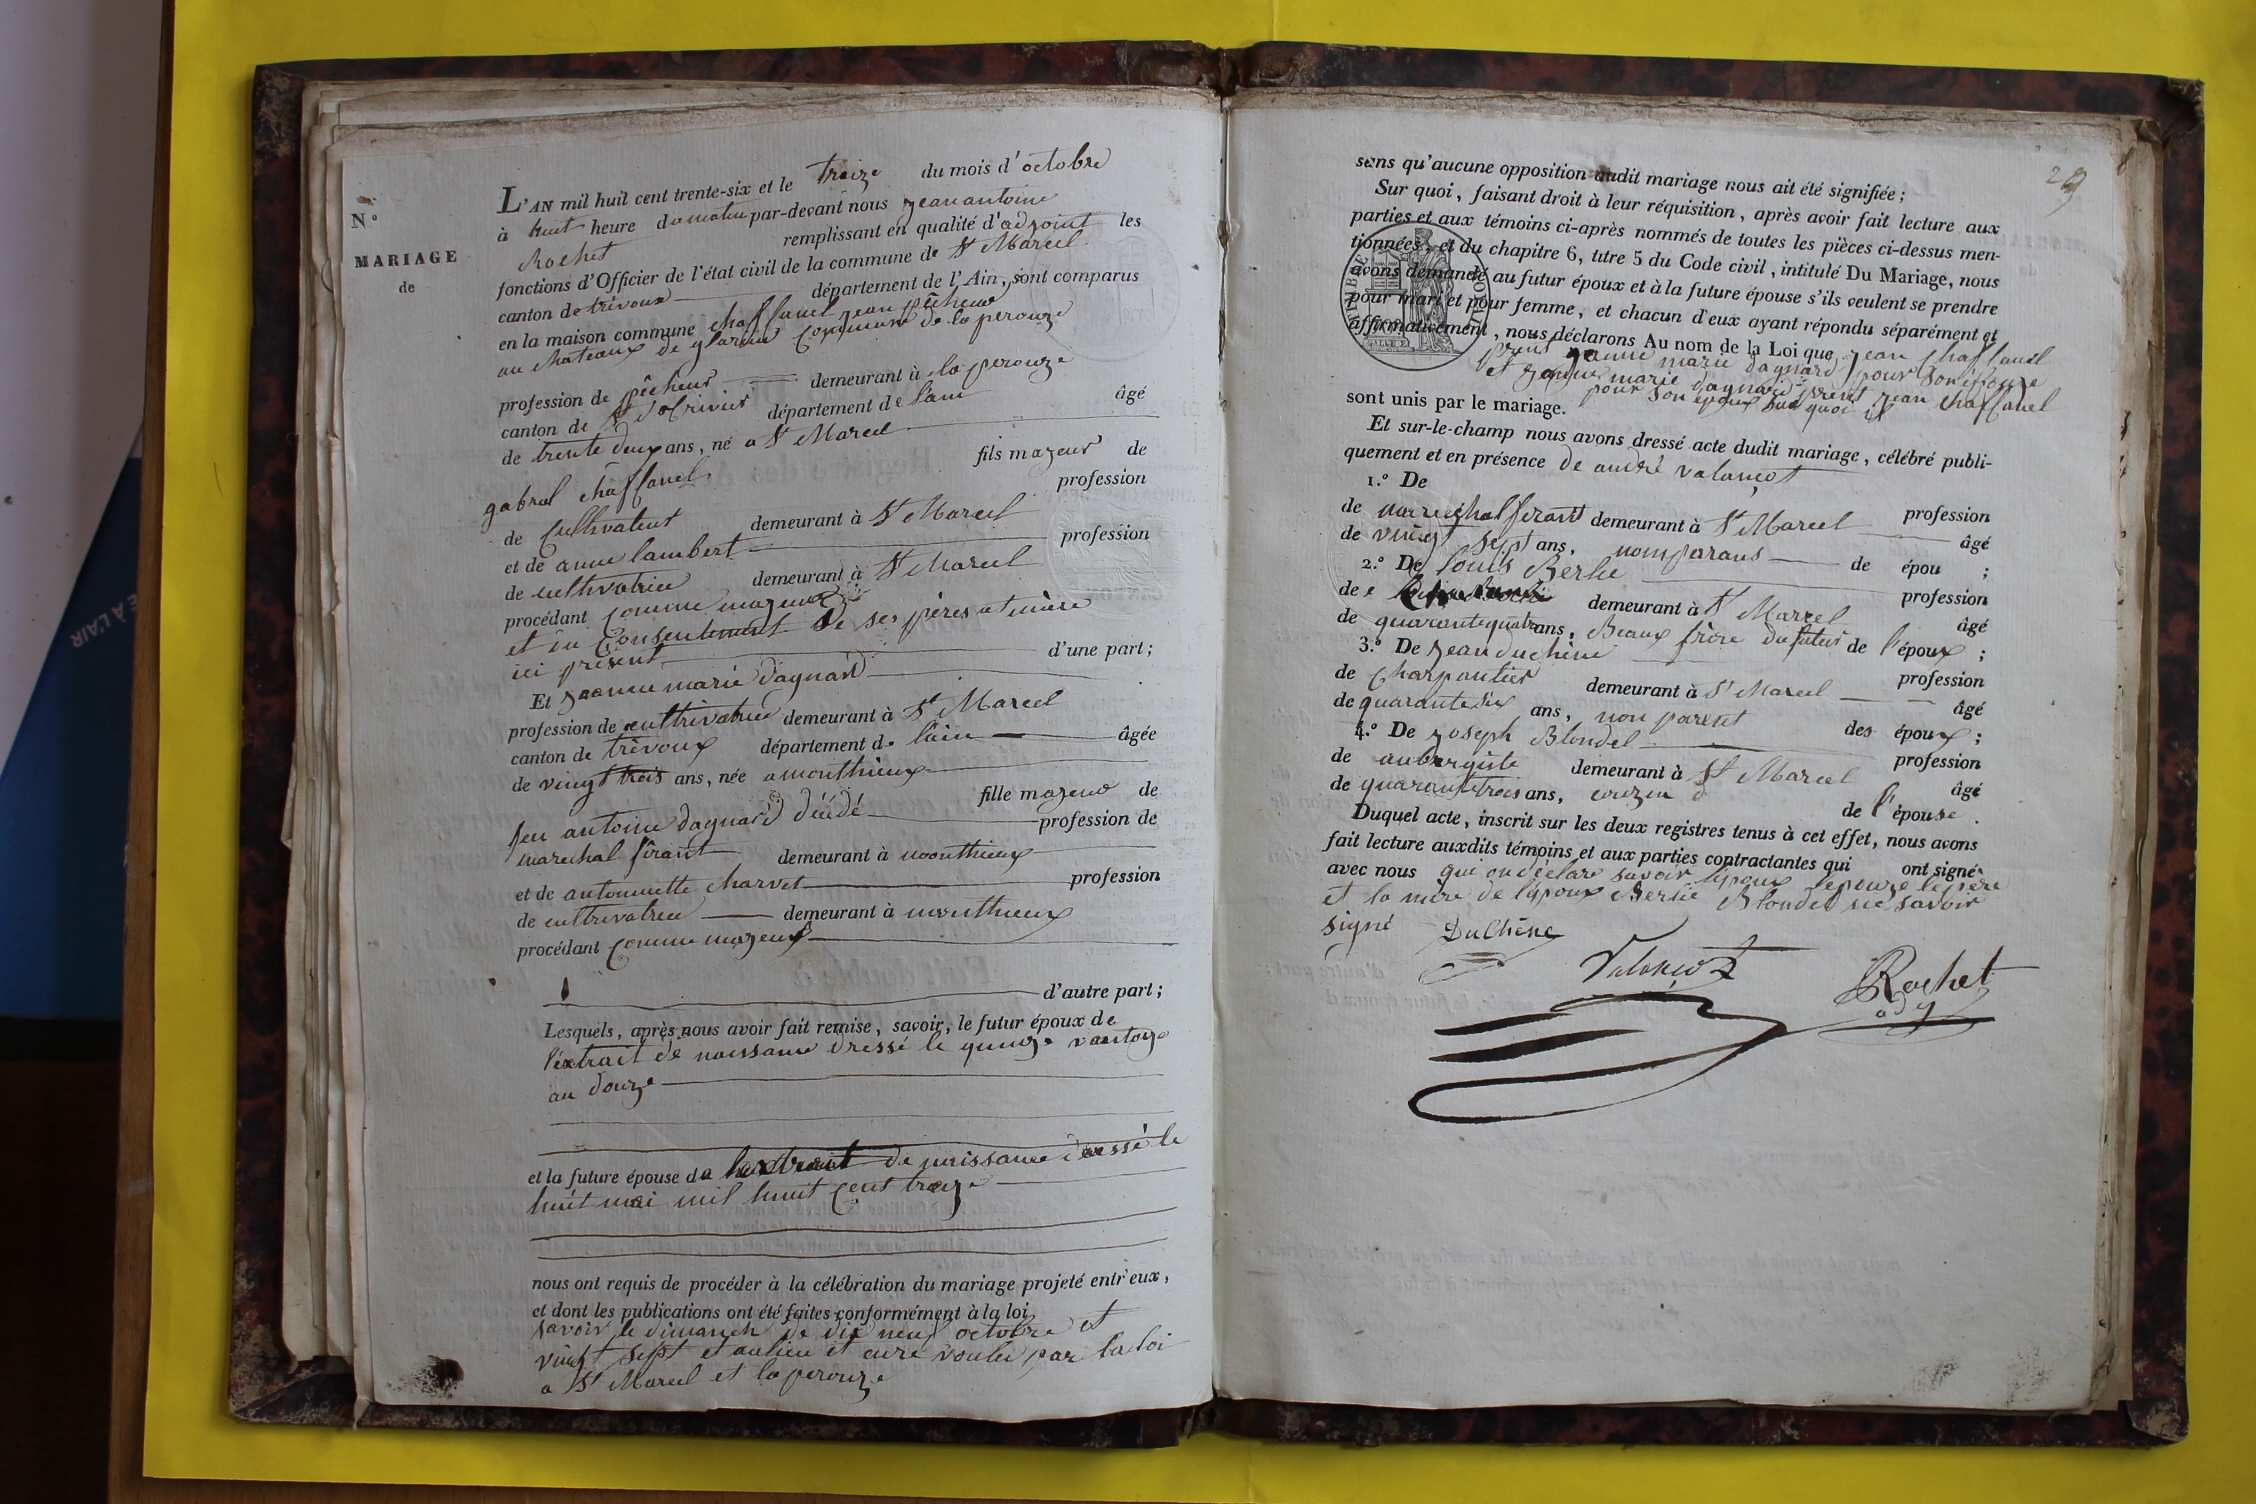 N.°
MARIAGE
de
L'AN mil huit cent trente-six et le treize du mois d'octobre
à huit heure du matin par-devant nous jean antoine
Rochet remplissant en qualité d'adjoint les
fonctions d'Officier de l'état civil de la commune de St Marcel
canton de trévoux département de l'Ain, sont comparus
en la maison commune chaffanel jean pêcheur
au chateaux de glareins commune de la perouze
profession de pêcheur demeurant à la perouze
canton de St trivier département de lain âgé
de trente deux ans, né a St Marcel
fils mazeur de
gabriel chaffanel profession
de Cultivateur demeurant à St Marcel
et de anne lambert profession
de cultivatrice demeurant à St Marcel
procédant comme mazeur
et du consentement de ses pères et mère
ici présent d'une part;
Et jeanne marie dagnard
profession de cultrivatrice demeurant à St Marcel
canton de trévoux département de lain âgée
de vingt trois ans, née a monthieux
fille mazeur de
feu antoine dagnard décédé profession de
marechal férant demeurant à monthieux
et de antoinette charvet profession
de cultrivatrice demeurant à monthieux
procédant comme mazeur
d'autre part;
Lesquels, après nous avoir fait remise, savoir, le futur époux de
l'extrait de naissance dressé le quinze vantoze
an douze
et la future épouse de lextrait de naissance dressé le
huit mai mil huit cent treize
nous ont requis de procéder à la célébration du mariage projeté entr'eux,
et dont les publications ont été faites conformément à la loi
savoir le dimanch de dix neuf octobre et
vingt sept et au lieu et eure voulu par la loi
a St Marcel et la perouze
29
sans qu'aucune opposition audit mariage nous ait été signifiée;
Sur quoi, faisant droit à leur réquisition, après avoir fait lecture aux
parties et aux témoins ci-après nommés de toutes les pièces ci-dessus men-
tionnées, et du chapitre 6, titre 5 du Code civil, intitulé Du Mariage, nous
avons demandé au futur époux et à la future épouse s'ils veulent se prendre
pour mari et pour femme, et chacun d'eux ayant répondu séparément et
affirmativement, nous déclarons Au nom de la Loi que jean chaffanel
prent janne marie dagnard pour son épouze
et janne marie dagnard prent jean chaffanel
pour son epoux sur quoi il
sont unis par le mariage.
Et sur-le-champ nous avons dressé acte dudit mariage, célébré publi-
quement et en présence de andré valançot
1.° De profession
de marechal ferant demeurant à St Marcel âgé
de vingt sept ans, nomparans de épou ;
2.° De louis Berlie profession
de demeurant à St Marcel âgé
de quarante quatre ans, Beaux frère du futur de l'époux ;
3.° De jean duchène profession
de charpantier demeurant à St Marcel âgé
de quarante six ans, non parent des époux ;
4.° De joseph Blondel profession
de aubergiste demeurant à St Marcel âgé
de quarante trois ans, couzen de l'épouse.
Duquel acte, inscrit sur les deux registres tenus à cet effet, nous avons
fait lecture auxdits témoins et aux parties contractantes qui ont signé
avec nous qui on déclare savoir lépoux lepouze le père
et la mère de lépoux Berlie Blondel ne savoir
signé DuChêne
Valançot
Rochet
adj